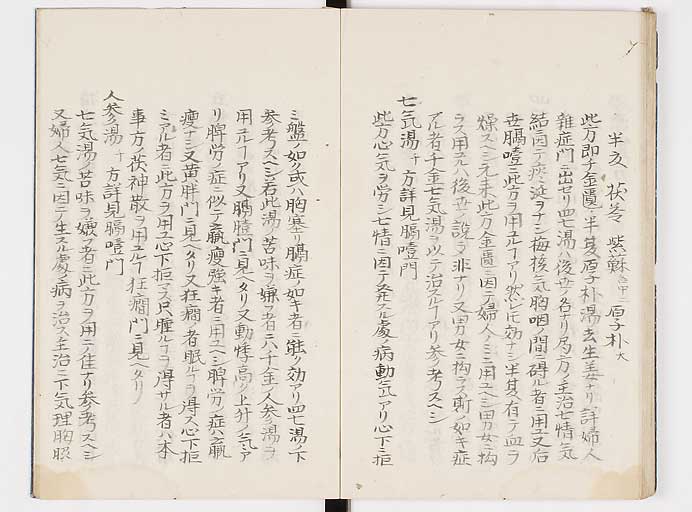 半夏 茯苓 紫蘇 各中 二 厚朴 大
此方即千金匱ニ半夏厚朴湯去生姜ナリ詳婦人
雜症門ニ出セリ四七湯ハ後世ノ名ナリ局方ノ主治七情氣
結ニ因テ痰涎ヲナシ梅核氣胸咽ノ間ニ碍ル者ニ用ユ又后
世膈噎ニ此方ヲ用ルヿアリ然レ𪜈効ナシ半夏ハ有テ血ヲ
燥スヘシ元来此方金匱ニ因テ婦人ノミニ用ユヘシ男女ニ拘
ラス用ルハ後世ノ設ニ非ナリ又男女ニ拘ラス斯ノ如キ症
アル者千金七氣湯ヲ以テ治スルヿアリ参考スヘシ
七氣湯 十 方詳見膈噎門
此方心氣ヲ労シ七情ニ因テ発スル處ノ病動氣アリ心下ニ拒
ミ盤ノ如ク或ハ胸塞リ膈症ノ如キ者ニ能ク効アリ四七湯ノ下
参考スヘシ若此湯ノ苦味ヲ嫌フ者ニハ千金ノ人参湯ヲ
用ユルヿアリ又膈噎門ニ見ヘタリ又動悸高ク上升ノ氣ア
リ脾労ノ症ニ似テ羸痩強キ者ニ用ユヘシ脾労ノ症ハ羸
痩ナシ又黄胖門ニ見ヘタリ又狂癇ノ者眠ルヿヲ得ス心下拒
ミアル者ニ此方ヲ用ユ心下拒マス只腫ルヿヲ得サル者ハ本
事方ノ茯神散ヲ用ユルヿ狂癇門ニ見ヘタリ
人参湯 十 方詳見膈噎門
七氣湯ノ苦味ヲ嫌フ者ニ此方ヲ用ニ佳ナリ参考スヘシ
又婦人七氣ニ因テ生スル處ノ病ヲ治ス主治ニ下氣理胸